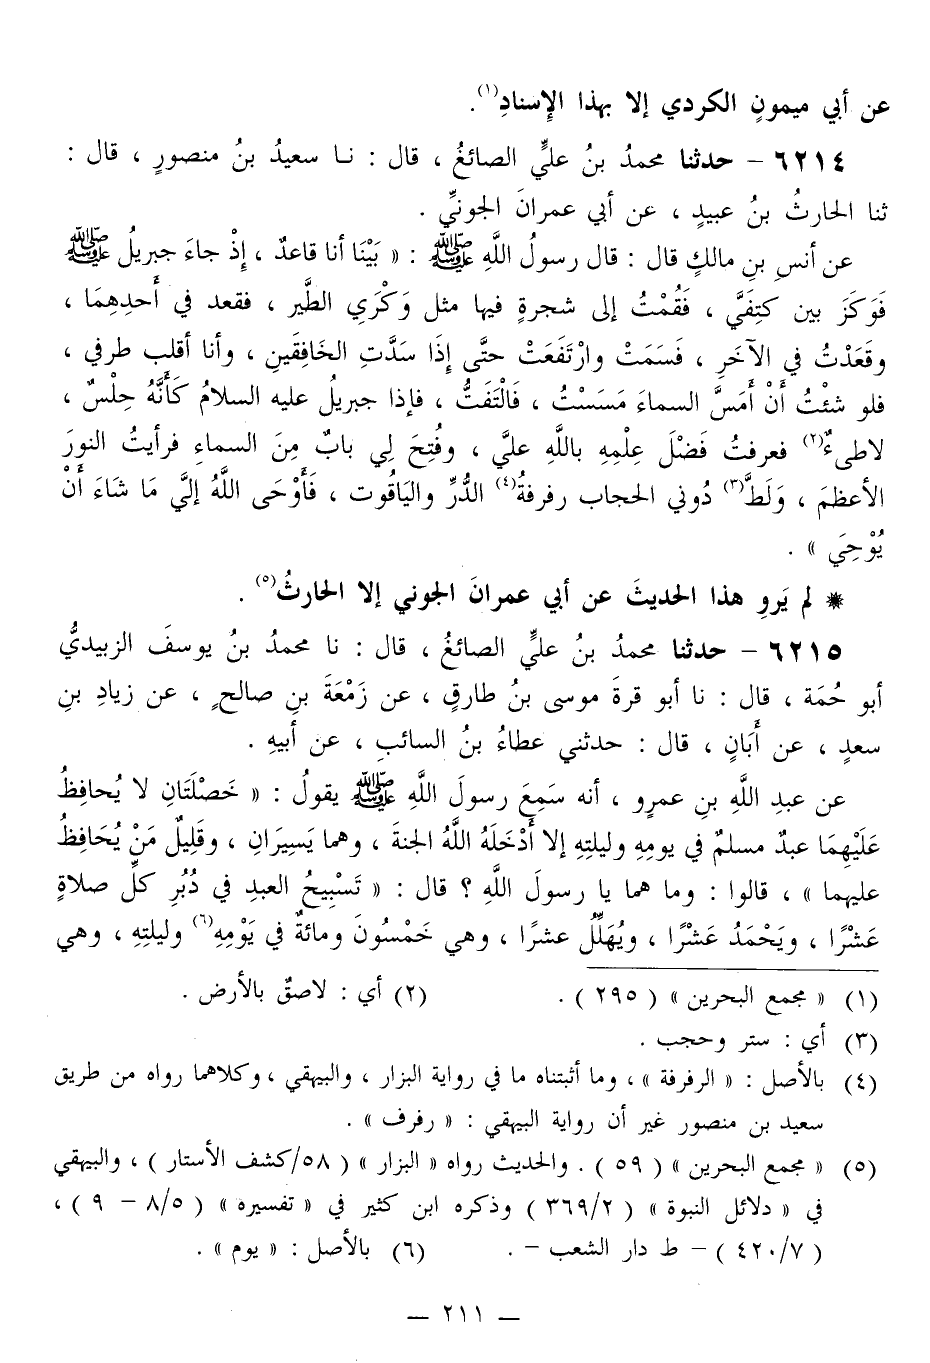 عن أبي ميمونٍ الكردي إلا بهذا الإِسنادِ(١).
٦٢١٤ - حدثنا محمدُ بنُ عليٍّ الصائغُ ، قال : نـا سعيدُ بنُ منصورٍ ، قال :
ثنا الحارثُ بنُ عبيدٍ ، عن أبي عمرانَ الجونيِّ .
عن أنسِ بنِ مالكٍ قال : قال رسولُ اللَّهِ ﷺ : « بَيْنَا أنا قاعدٌ ، إِذْ جاءَ جبريلُ ﷺ
فَوَكَزَ بين كتِفَيَّ ، فَقُمْتُ إلى شجرةٍ فيها مثل وَكْرَي الطَّير ، فقعد في أَحدِهِمَا ،
وقَعَدْتُ في الآخَرِ ، فَسَمَتْ وارْتَفَعَتْ حتَّى إِذَا سَدَّتِ الخَافِقَينِ ، وأنا أقلب طرفي ،
فلو شئْتُ أَنْ أَمَسَّ السماءَ مَسَسْتُ ، فَالْتَفَتُّ ، فإذا جبريلُ عليه السلامُ كَأَنَّهُ حِلْسٌ ،
لاطىءٌ(٢) فعرفتُ فَضْلَ عِلْمِهِ باللَّهِ عليَّ ، وفُتِحَ لِي بابٌ مِنَ السماءِ فرأيتُ النورَ
الأعظمَ ، وَلَطَّ(٣) دُوني الحجاب رفرفةُ(٤) الدُّرِّ واليَاقُوت ، فَأَوْحَى اللَّهُ إليَّ مَا شَاءَ أَنْ
يُوْحِيَ » .
* لم يَروِ هذا الحديثَ عن أبي عمرانَ الجوني إلا الحارثُ(٥) .
٦٢١٥ - حدثنا محمدُ بنُ عليٍّ الصائغُ ، قال : نا محمدُ بنُ يوسفَ الزبيديُّ
أبو حُمَة ، قال : نا أبو قرةَ موسى بنُ طارقٍ ، عن زَمْعَةَ بنِ صالحٍ ، عن زيادِ بنِ
سعدٍ ، عن أَبَانٍ ، قال : حدثني عطاءُ بنُ السائبِ ، عن أبيهِ .
عن عبدِ اللَّهِ بنِ عمرٍو ، أنه سَمِعَ رسولَ اللَّهِ ﷺ يقولُ : « خَصْلَتَانِ لا يُحافِظُ
عَلَيْهِمَا عبدٌ مسلمٌ في يومِهِ وليلتِهِ إلا أَدْخَلَهُ اللَّهُ الجنةَ ، وهما يَسِيرَانِ ، وقَلِيلٌ مَنْ يُحَافِظُ
عليهما » ، قالوا : وما هما يا رسولَ اللَّهِ ؟ قال : « تَسْبِيحُ العبدِ في دُبُرِ كلِّ صلاةٍ
عَشْرًا ، ويَحْمَدُ عَشْرًا ، ويُهَلِّلُ عشرًا ، وهي خَمْسُونَ ومائةٌ في يَوْمِهِ(٦) وليلتِهِ ، وهي
(١) « مجمع البحرين » ( ٢٩٥ ) . (٢) أي : لاصقٌ بالأرض .
(٣) أي : ستر وحجب .
(٤) بالأصل : « الرفرفة » ، وما أثبتناه ما في رواية البزار ، والبيهقي ، وكلاهما رواه من طريق
سعيد بن منصور غير أن رواية البيهقي : « رفرف » .
(٥) « مجمع البحرين » ( ٥٩ ) . والحديث رواه « البزار » ( ٥٨/كشف الأستار ) ، والبيهقي
في « دلائل النبوة » ( ٣٦٩/٢ ) وذكره ابن كثير في « تفسيره » ( ٨/٥ - ٩ ) ،
( ٤٢٠/٧ ) - ط دار الشعب - . (٦) بالأصل : « يوم » .
— ٢١١ —